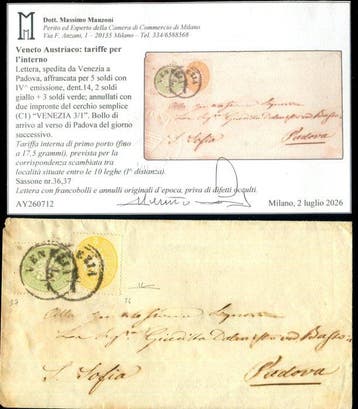 Dott. Massimo Manzoni
Perito ed Esperto della Camera di Commercio di Milano
Via F. Anzani, 1 - 20135 Milano - Tel. 334/6588568
Veneto Austriaco: tariffe per
l'interno
Lettera, spedita da Venezia a
Padova, affrancata per 5 soldi con
IV^ emissione, dent.14, 2 soldi
giallo + 3 soldi verde; annullati con
due impronte del cerchio semplice
(C1) "VENEZIA 3/1". Bollo di
arrivo al verso di Padova del giorno
successivo.
Tariffa interna di primo porto (fino
a 17,5 grammi), prevista per la
corrispondenza scambiata tra
località situate entro le 10 leghe (1ª distanza)
Sassone nr.36,37
Lettera con francobolli e annulli originali d'epoca, priva di difetti occulti.
AY260712
Milano, 2 luglio 2026
Padova
S. Sofia
VENEZIA
37
36
Alla
Signora
Giuditta
S. Sofia
Padova